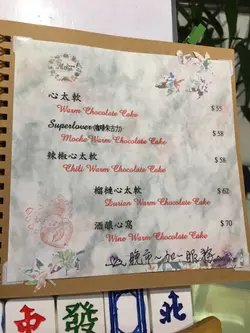 心太軟
Warm Chocolate Cake $55
Superlover(咖啡朱古力) $58
Mocha Warm Chocolate Cake
辣椒心太軟 $58
Chili Warm Chocolate Cake
榴槤心太軟 $62
Durian Warm Chocolate Cake
酒釀心窩 $70
Wine Warm Chocolate Cake
晚市~加一服務
北 發 北